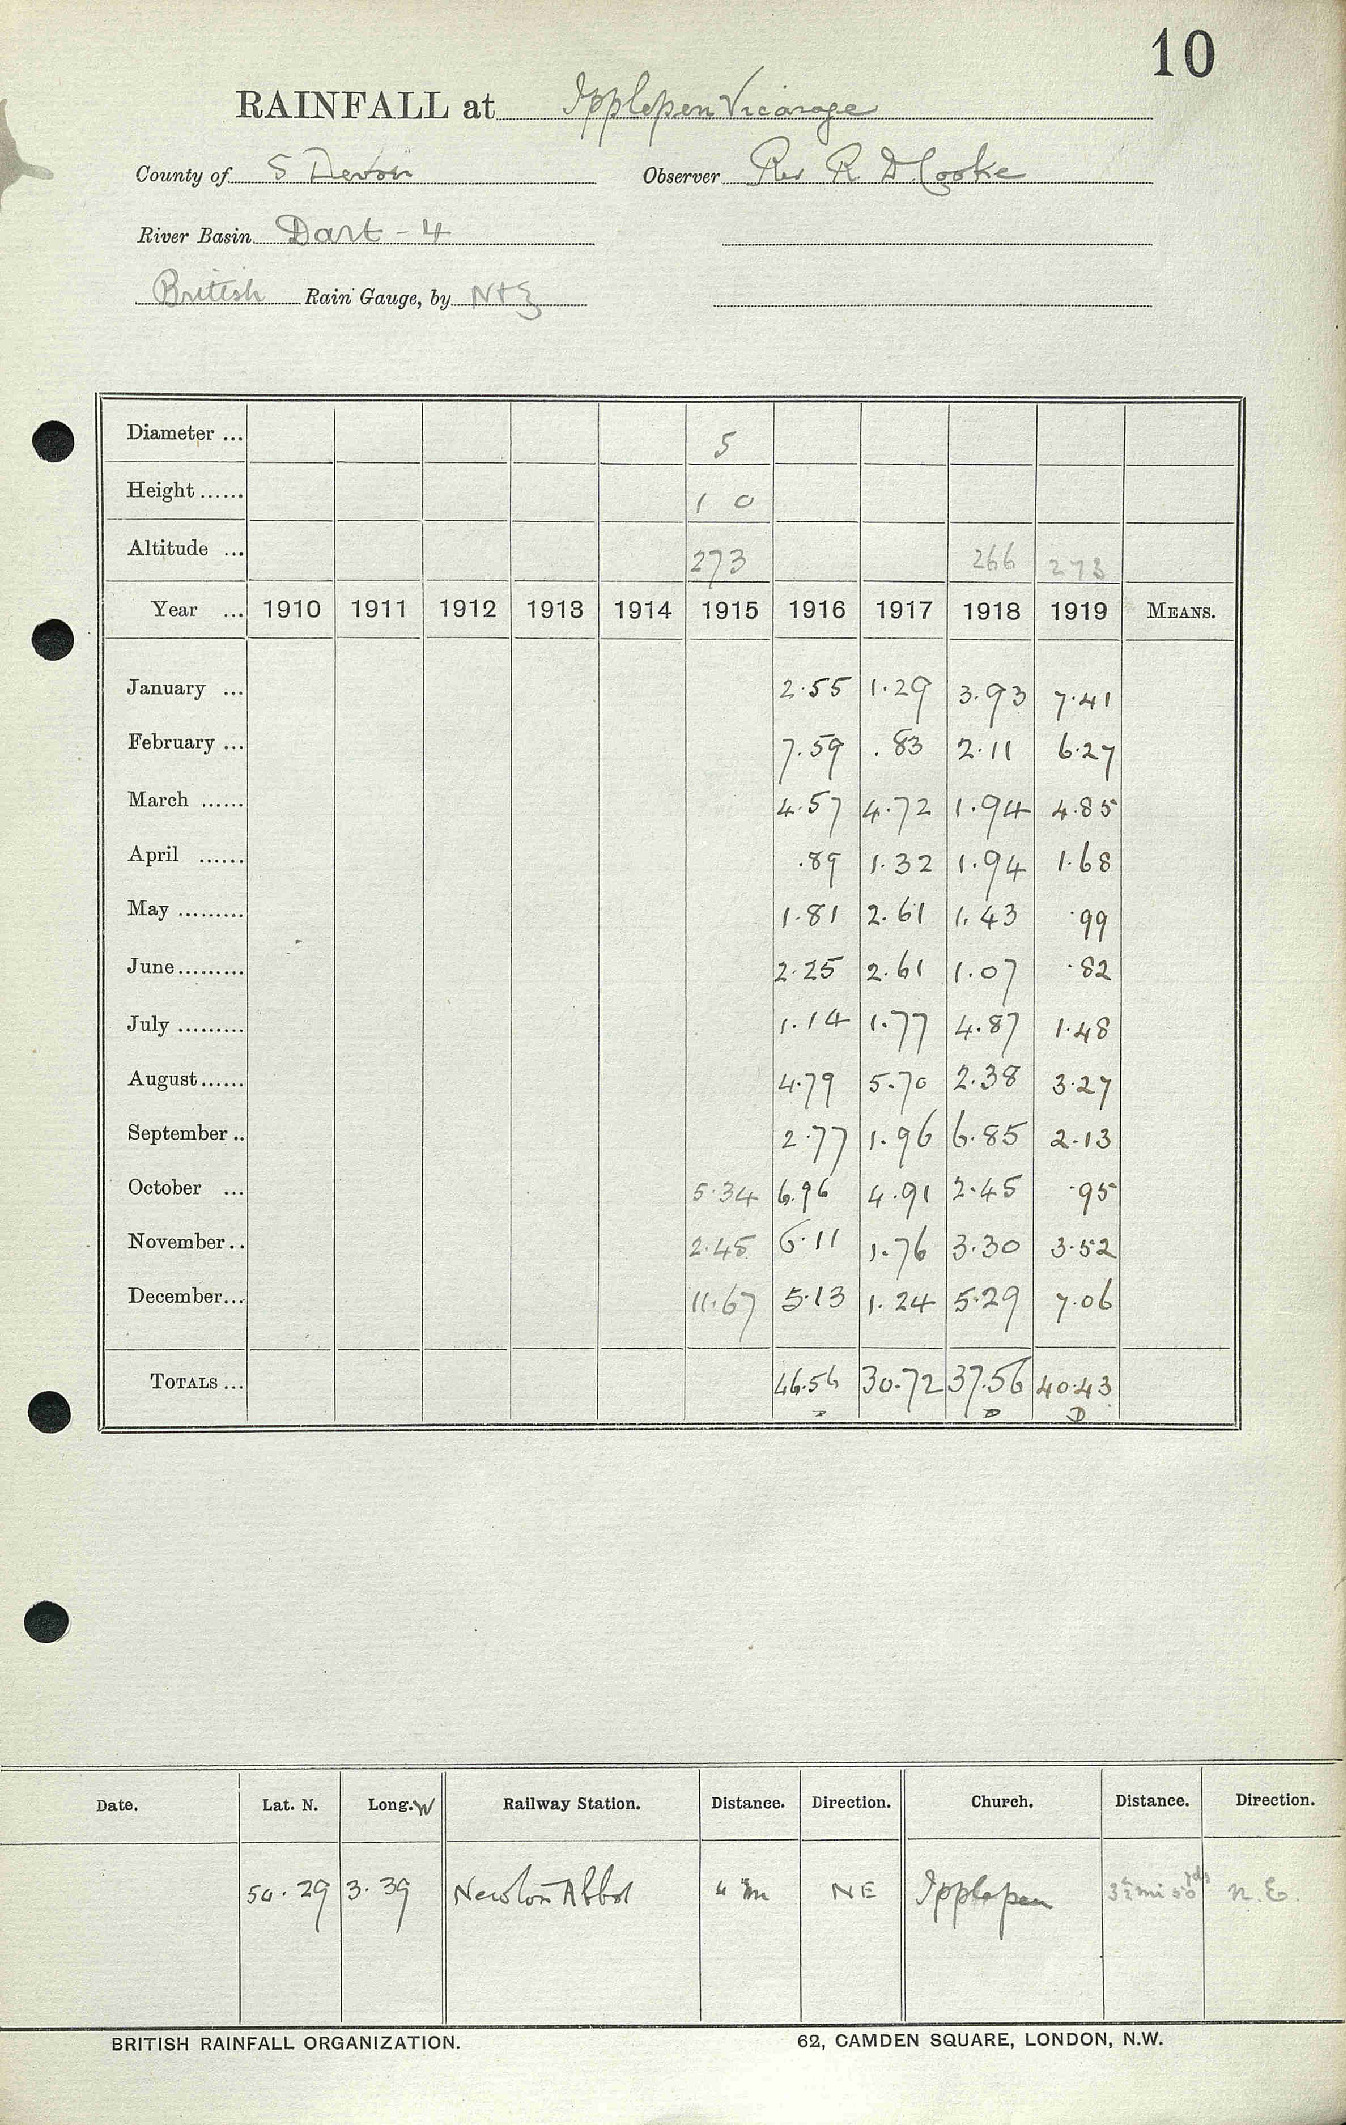 10
RAINFALL at Ipplepen Vicarage
County of S Devon Observer Rev R D Cooke
River Basin Dart - 4
British Rain Gauge, by N+Z
Diameter ... 5
Height ...... 1 0
Altitude ... 273 266 273
Year ... 1910 1911 1912 1913 1914 1915 1916 1917 1918 1919 MEANS.
January ... 2.55 1.29 3.93 7.41
February ... 7.59 .83 2.11 6.27
March ...... 4.57 4.72 1.94 4.85
April ...... .89 1.32 1.94 1.68
May ......... 1.81 2.61 1.43 .99
June......... 2.25 2.61 1.07 .82
July ......... 1.14 1.77 4.87 1.48
August...... 4.79 5.70 2.38 3.27
September .. 2.77 1.96 6.85 2.13
October ... 5.34 6.96 4.91 2.45 .95
November .. 2.45 6.11 1.76 3.30 3.52
December... 11.67 5.13 1.24 5.29 7.06
TOTALS ... 46.56 30.72 37.56 40.43
D D D
Date. Lat. N. Long. W Railway Station. Distance. Direction. Church. Distance. Direction.
50.29 3.39 Newton Abbot NE Ipplepen N.E.
BRITISH RAINFALL ORGANIZATION. 62, CAMDEN SQUARE, LONDON, N.W.